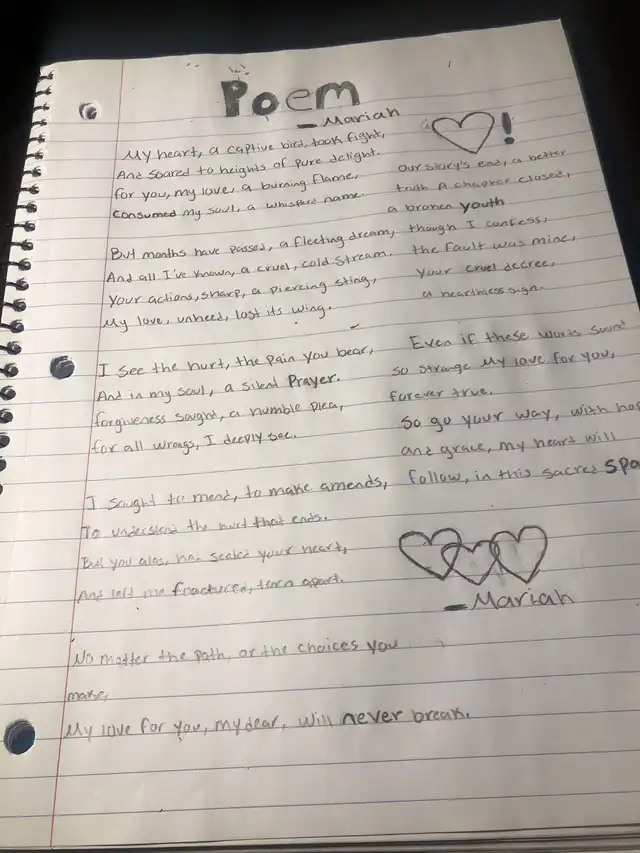 Poem
– Mariah
My heart, a captive bird, took fight,
And soared to heights of pure delight.
for you, my love, a burning flame,
Consumed my soul, a whisperd name.
But months have passed, a fleeting dream,
And all I've known, a cruel, cold stream.
Your actions, sharp, a piercing sting,
My love, unheed, lost its wing.
I see the hurt, the pain you bear,
And in my soul, a silent Prayer.
forgiveness sought, a humble plea,
for all wrongs, I deeply see.
I sought to mend, to make amends,
To understand the hurt that ends.
But you alas, has sealed your heart,
And left me fractured, torn apart.
No matter the path, or the choices you
make,
My love for you, my dear, will never break.
!
Our story's end, a better
truth A chapter closed,
a broken youth
though I confess,
the fault was mine,
Your cruel decree,
a heartless sign.
Even if these words sound
so strange My love for you,
forever true.
So go your way, with
and grace, my heart will
follow, in this sacred
– Mariah